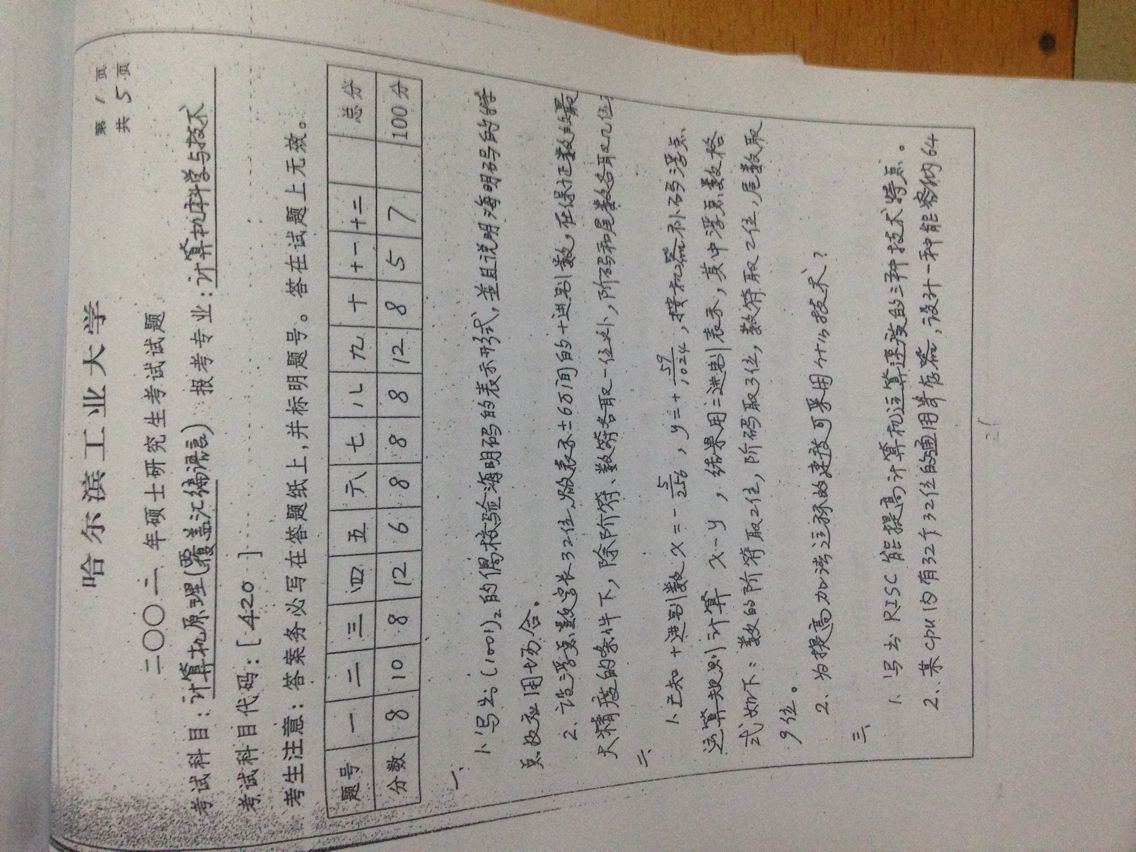 第 1 页
共 5 页
哈尔滨工业大学
二〇〇二年硕士研究生考试试题
考试科目:计算机原理(覆盖汇编语言) 报考专业:计算机科学与技术
考试科目代码:[420 ]
考生注意:答案务必写在答题纸上,并标明题号。答在试题上无效。
题号 一 二 三 四 五 六 七 八 九 十 十一 十二 总分
分数 8 10 8 12 6 8 8 8 12 8 5 7 100分
一、
1、写出(1001)₂的偶校验海明码的表示形式,並且说明海明码的特
点及应用场合。
2、设浮点数字长32位,欲表示±6万间的十进制数,在保证数的最
大精度的条件下,除阶符、数符各取一位外,阶码和尾数各取几位
二、
1、已知十进制数 X=-5/256, y=+59/1024,按机器补码浮点
运算规则计算 X-y,结果用二进制表示,其中浮点数格
式如下:数的阶符取2位,阶码取3位,数符取2位,尾数取
9位。
2、为提高加法运算的速度可采用什么技术?
三、
1、写出RISC能提高计算机运算速度的三种技术特点。
2、某CPU内有32个32位的通用寄存器,设计一种能容纳64